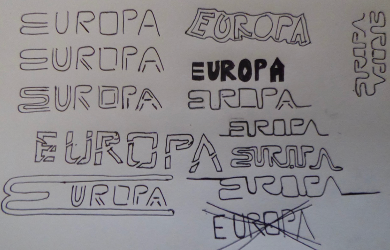 EUROPA
EUROPA
EUROPA
EUROPA
EUROPA
EUROPA
EUROPA
EUROPA
EUROPA
EUROPA
EUROPA
EUROPA
EUROPA
EUROPA